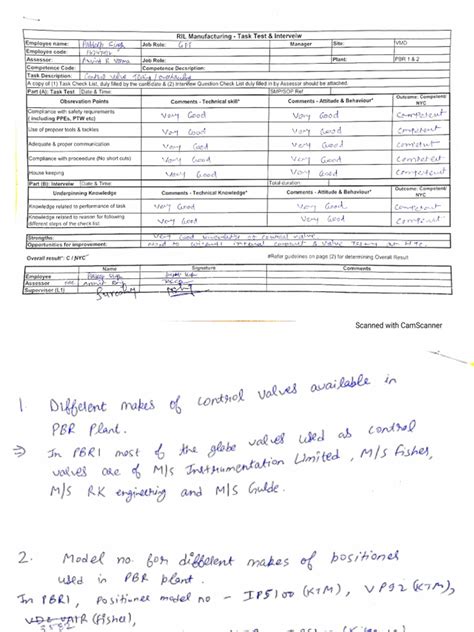 RIL Manufacturing - Task Test & Interveiw
Employee name: Job Role: Manager Site: VMD
Employee code:
Assessor: Job Role: Plant: PBR 1 & 2
Competence Code: Competence Decription:
Task Description: Control Valve
A copy of (1) Task Check List, duly filled by the candidate & (2) Interview Question Check List duly filled by Assessor should be attached.
Part (A): Task Test Date & Time: SMP/SOP Ref
Observation Points Comments - Technical skill* Comments - Attitude & Behaviour* Outcome: Competent/ NYC
Compliance with safety requirements ( including PPEs, PTW etc) Very Good Very Good Competent
Use of proper tools & tackles Very Good Very Good Competent
Adequate & proper communication Very Good Very Good Competent
Compliance with procedure (No short cuts) Very Good Very Good Competent
House keeping Very Good Very Good Competent
Part (B): Interveiw Date & Time: Total duration:
Underpinning Knowledge Comments - Technical Knowledge* Comments - Attitude & Behaviour* Outcome: Competent/ NYC
Knowledge related to performance of task Very Good Very Good Competent
Knowledge related to reason for following different steps of the check list Very Good Very Good Competent
Strengths: Very Good knowledge of control valve
Opportunities for improvement:
Overall result*: C / NYC* #Refer guidelines on page (2) for determining Overall Result
Name Signature Comments
Employee
Assessor
Supervisor (L1)
Scanned with CamScanner
1. Different makes of control valves available in
PBR Plant.
⇒ In PBR1 most of the globe valves used as control
valves are of M/s Instrumentation Limited, M/s Fisher,
M/s RK engineering and M/s Gulde.
2. Model no. for different makes of positioner
used in PBR plant.
In PBR1, Positioner model no - IP5100 (KIM), VP92 (KIM),
(Fisher),